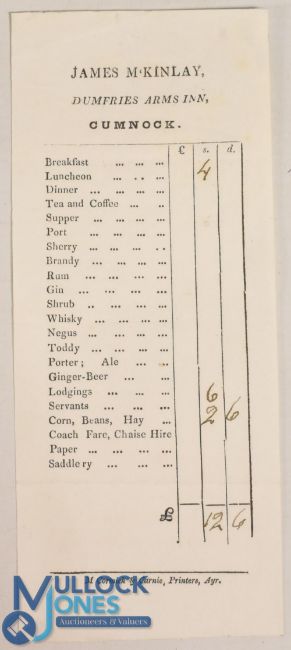 JAMES M'KINLAY,
DUMFRIES ARMS INN,
CUMNOCK.
£ s. d.
Breakfast ... ... ... 4
Luncheon ... .. ...
Dinner ... ... ... ...
Tea and Coffee ... ..
Supper ... ... ... ...
Port ... ... ... ...
Sherry ... ... ... ..
Brandy ... ... ... ...
Rum ... ... ... ...
Gin ... ... ... ...
Shrub .. ... ... ...
Whisky ... ... ... ...
Negus ... ... ... ...
Toddy ... ... ... ...
Porter; Ale ... ...
Ginger-Beer ... ...
Lodgings ... ... ... 6
Servants ... ... ... 2 6
Corn, Beans, Hay ...
Coach Fare, Chaise Hire
Paper ... ... ... ...
Saddlery ... ... ...
£ 12 6
M'Cormick & Carnie, Printers, Ayr.
MULLOCK
JONES
Auctioneers & Valuers